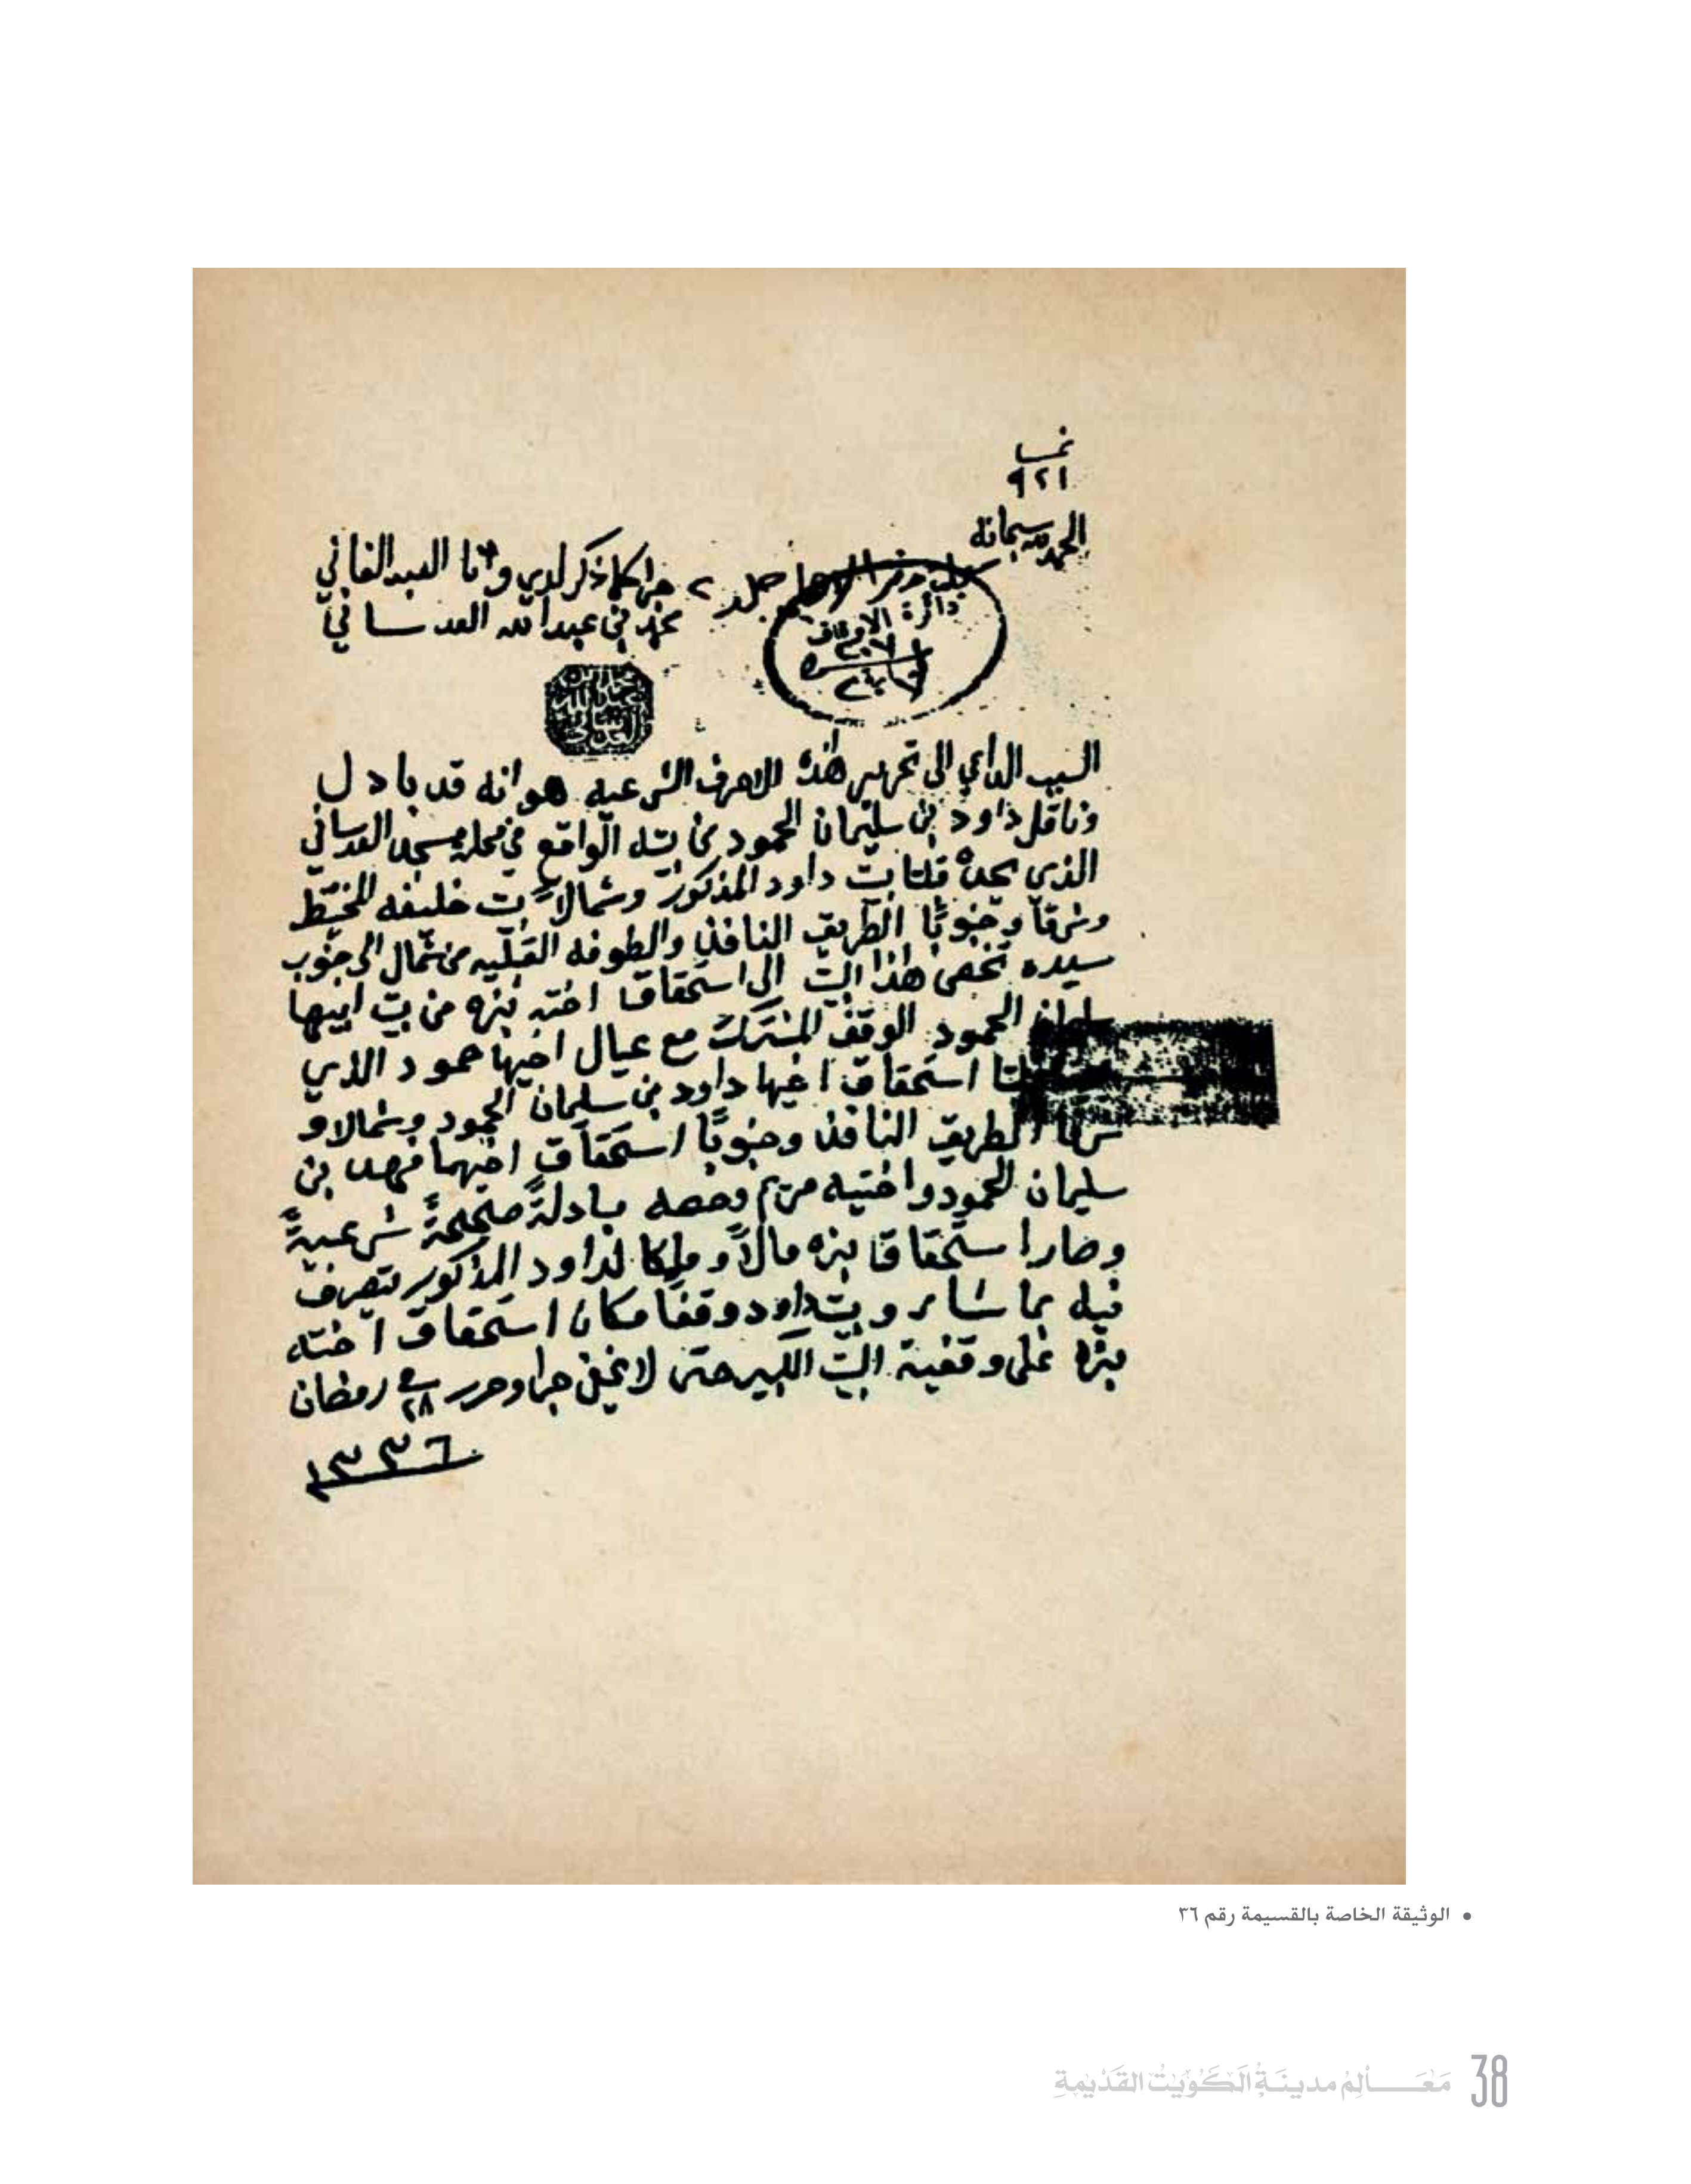 نمبر
٩٢١
الحمد لله سبحانه
جرا كما ذكر لدي وانا العبد الفاني
محمد بن عبدالله العدساني
جلد ٢
دائرة الاوقاف
السبب الداعي الى تحرير هذه الاحرف الشرعيه هو انه قد بادل
وناقل داود بن سليمان الحمود عن بيته الواقع في محلة مسجد العدساني
الذي يحده قبلتا بيت داود المذكور وشمالاً بيت خليفه المخيط
وشرقاً وجنوبًا الطريق النافذ والطوفه القبليه من شمال الى جنوب
سيده تخص هذا البيت الى استحقاق اخته بزه من بيت ابيها
سليمان الحمود الوقف المشترك مع عيال اخيها حمود الذي
قبلتا استحقاق اخيها داود بن سليمان الحمود وشمالا و
شرقا الطريق النافذ وجنوبًا استحقاق اخيهما فهد بن
سليمان الحمود واختيه مريم وحصه مبادلةً صحيحةً شرعيةً
وصار استحقاق بزه مالاً وملكا لداود المذكور يتصرف
فيه بما شاء وبيت داود وقفا مكان استحقاق اخته
بزه على وقفية البيت الكبير حتى لا يخفى جرا وحرر في ٢٨ رمضان
١٣٣٦
• الوثيقة الخاصة بالقسيمة رقم ٣٦
مَعَـــالِمُ مدينَةِ الكُوَيْتُ القَدْيمةِ 38